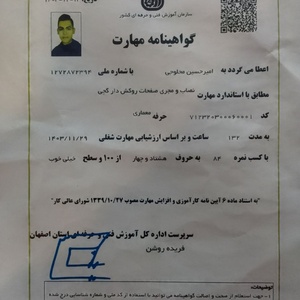 سازمان آموزش فنی و حرفه ای کشور
گواهینامه مهارت
اعطا می گردد به امیرحسین محلوجی با شماره ملی ۱۲۷۲۸۷۲۳۹۴
مطابق با استاندارد مهارت نصاب و مجری صفحات روکش دار گچی
کد ۷۱۲۳۲۰۳۰۰۰۶۰۰۰۱ حرفه معماری
به مدت ۱۳۲ ساعت و بر اساس ارزشیابی مهارت شغلی ۱۴۰۳/۱۱/۲۹
با کسب نمره ۸۴ به حروف هشتاد و چهار از ۱۰۰ و سطح خیلی خوب
"به استناد ماده ۶ آیین نامه کارآموزی و افزایش مهارت مصوب ۱۳۴۹/۱۰/۲۷ شورای عالی کار"
سرپرست اداره کل آموزش فنی و حرفه ای استان اصفهان
فریده روشن
توضیحات: